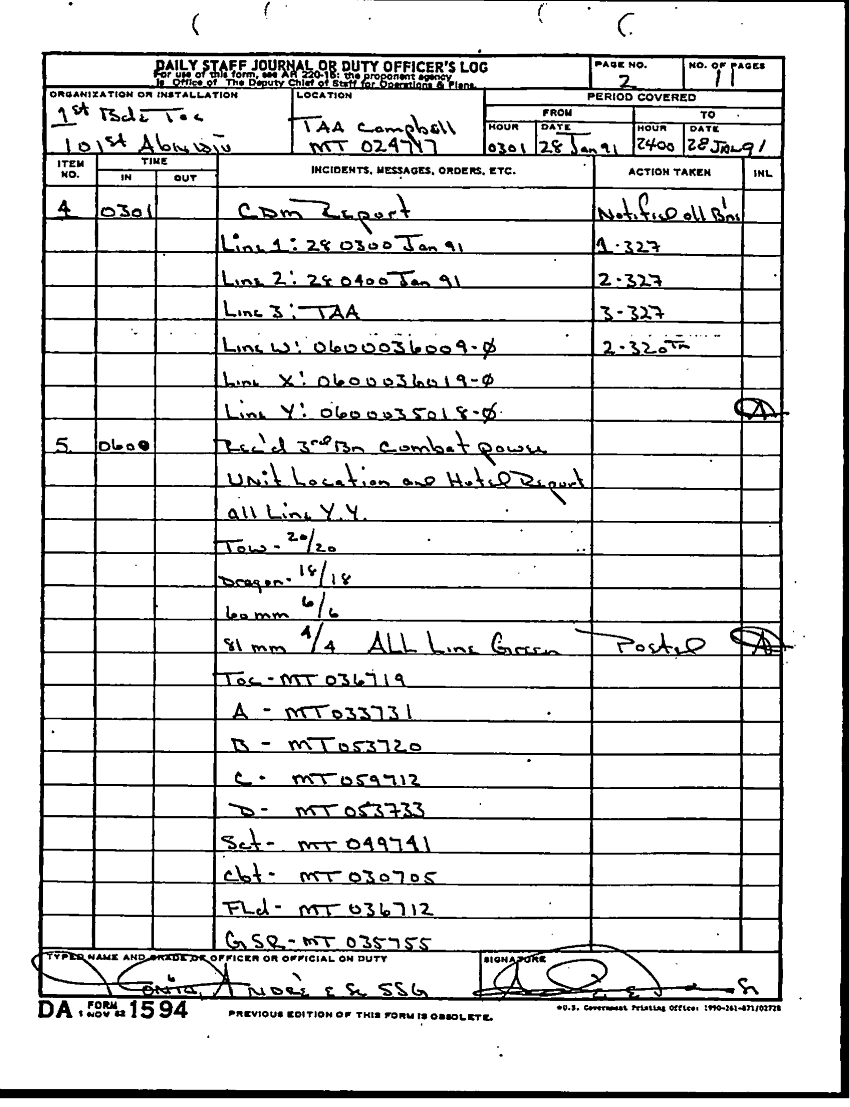 DAILY STAFF JOURNAL OR DUTY OFFICER'S LOG
For use of this form, see AR 220-15; the proponent agency
is Office of The Deputy Chief of Staff for Operations & Plans.
PAGE NO.
2
NO. OF PAGES
11
ORGANIZATION OR INSTALLATION
1st Bde Toc
101st Abn
LOCATION
TAA Campbell
MT 024747
PERIOD COVERED
FROM TO
HOUR DATE HOUR DATE
0301 28 Jan 91 2400 28 Jan 91
ITEM NO. TIME IN OUT INCIDENTS, MESSAGES, ORDERS, ETC. ACTION TAKEN INL
4 0301 CDM Report Notified all Bns
Line 1: 28 0300 Jan 91 1-327
Line 2: 28 0400 Jan 91 2-327
Line 3: TAA 3-327
Line W: 0600036009-Ø 2-320th
Line X: 0600036019-Ø
Line Y: 0600035018-Ø
5 0600 Rec'd 3rd Bn Combat power
Unit Location and Hotel Report
all Line Y.Y.
Tow- 20/20
Dragon- 18/18
60 mm 6/6
81 mm 4/4 ALL Line Green Posted
Toc - MT 036719
A - MT 033731
B - MT 053720
C - MT 059712
D - MT 053733
Sct - MT 049741
Cbt - MT 030705
FLd - MT 036712
GSR - MT 035755
TYPED NAME AND GRADE OF OFFICER OR OFFICIAL ON DUTY
ANDRE E Sr SSG
SIGNATURE
DA FORM 1 NOV 62 1594
PREVIOUS EDITION OF THIS FORM IS OBSOLETE.
*U.S. Government Printing Office: 1990-261-871/02728